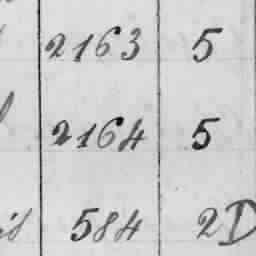 2163 5
2164 5
584 2D